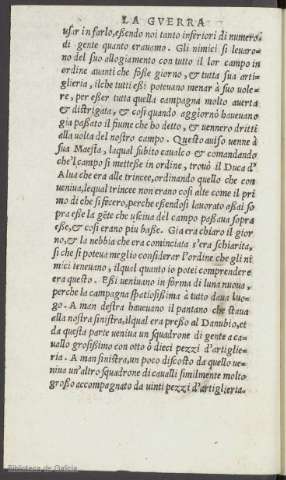 LA GVERRA
usar in farlo, eßendo noi tanto inferiori di numero,
di gente quanto erauamo. Gli nimici si leuaro-
no del suo allogiamento con tutto il lor campo in
ordine auanti che foße giorno, & tutta sua arti-
glieria, ilche tutti eßi poteuano menar à suo uole-
re, per eßer tutta quella campagna molto auerta
& distrigata, & cosi quando aggiornò haueuano
gia paßato il fiume che ho detto, & uennero dritti
alla uolta del nostro campo. Questo auiso uenne à
sua Maestà, laqual subito caualcò & comandando
che'l campo si metteße in ordine, trouò il Duca d'
Alua che era alle trincee, ordinando quello che con
ueniua, le qual trincee non erano cosi alte come il pri
mo di che si fecero, perche eßendosi lauorato aßai so
pra eße la gẽte che usciua del campo paßaua sopra
eße, & cosi erano piu baße. Gia era chiaro il gior
no, & la nebbia che era cominciata s'era schiarita,
si che si poteua meglio considerar l'ordine che gli ni
mici teneuano, il qual quanto io potei comprendere
era questo. Eßi ueniuano in forma di luna nuoua,
perche la campagna spatiosißima à tutto daua luo-
go. A man destra haueuano il pantano che staua
ella nostra sinistra, ilqual era preßo al Danubio, et
da questa parte ueniua un squadrone di gente a ca-
uallo großißimo con otto ò dieci pezzi d'artiglie-
ria. A man sinistra, un poco discosto da quello ue-
niua un'altro squadrone di caualli similmente molto
großo accompagnato da uinti pezzi d'artiglieria.
Biblioteca de Galicia